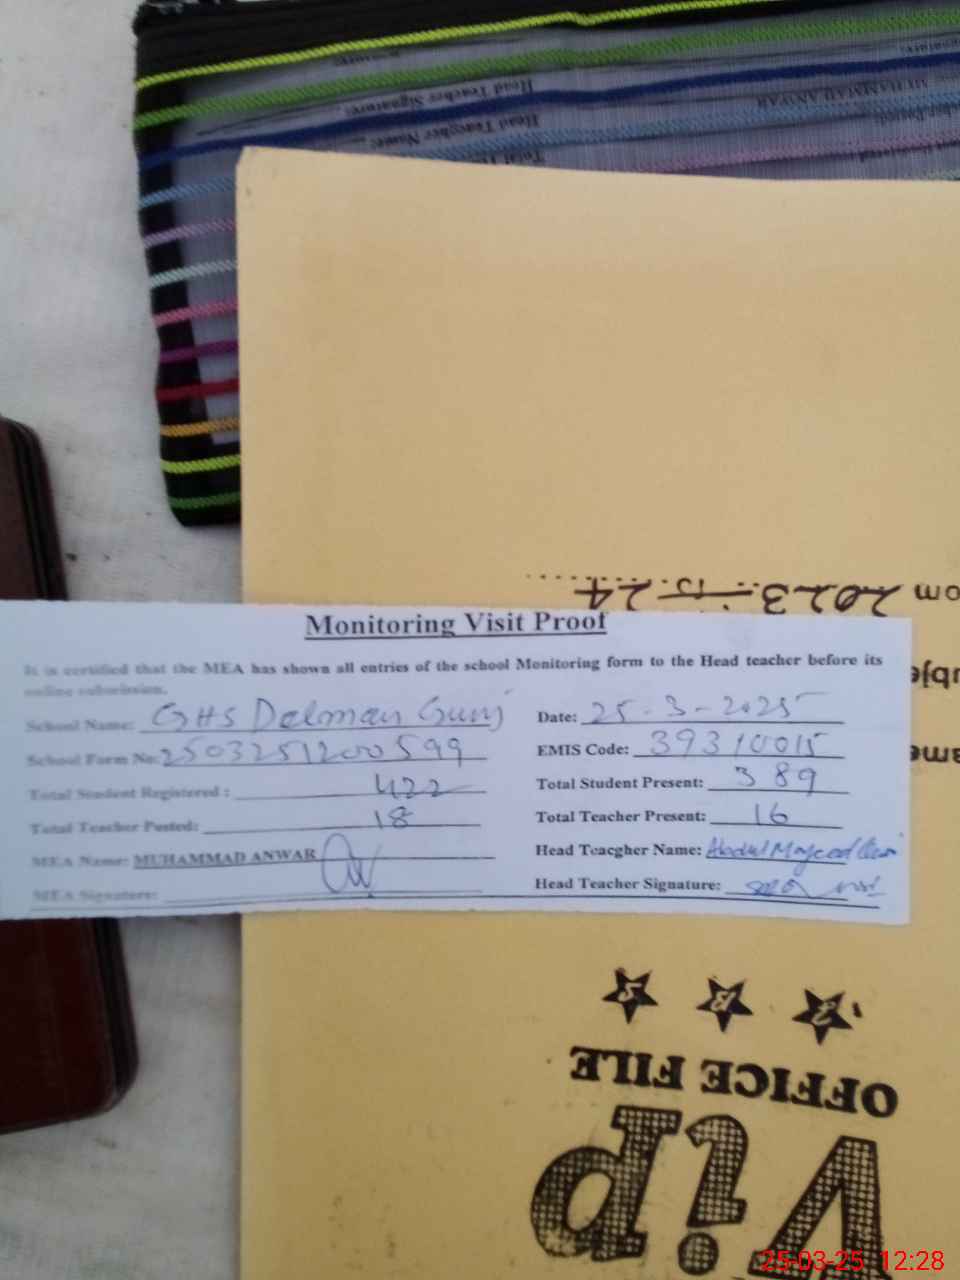 Head Teacher Signature:
Head Teacgher Name:
MUHAMMAD ANWAR
om 2023 - 15.24
Monitoring Visit Proof
It is certified that the MEA has shown all entries of the school Monitoring form to the Head teacher before its
online submission.
School Name: GHS Delman Gunj Date: 25-3-2025
School Form No: 2503251200599 EMIS Code: 39310015
Total Student Registered : 422 Total Student Present: 389
Total Teacher Posted: 18 Total Teacher Present: 16
MEA Name: MUHAMMAD ANWAR Head Teacgher Name: Abdul Majeed
MEA Signature: Head Teacher Signature:
OFFICE FILE
Vip
25-03-25 12:28